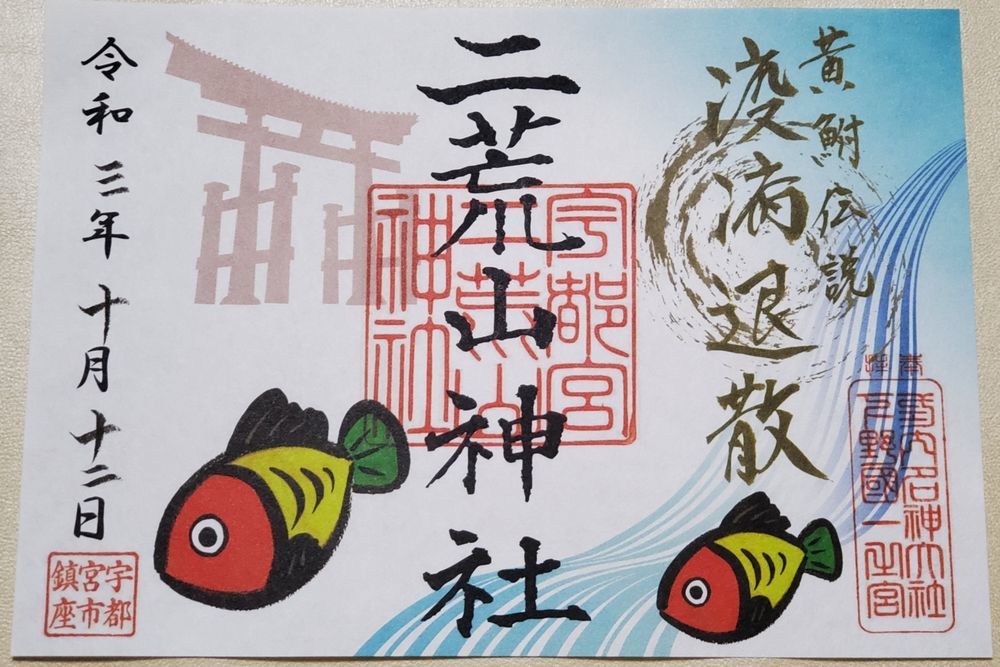 黄鮒伝説
疫病退散
奉拝
式内名神大社
下野國一之宮
二荒山神社
宇都宮
二荒山
神社
令和三年十月十二日
宇都
宮市
鎮座